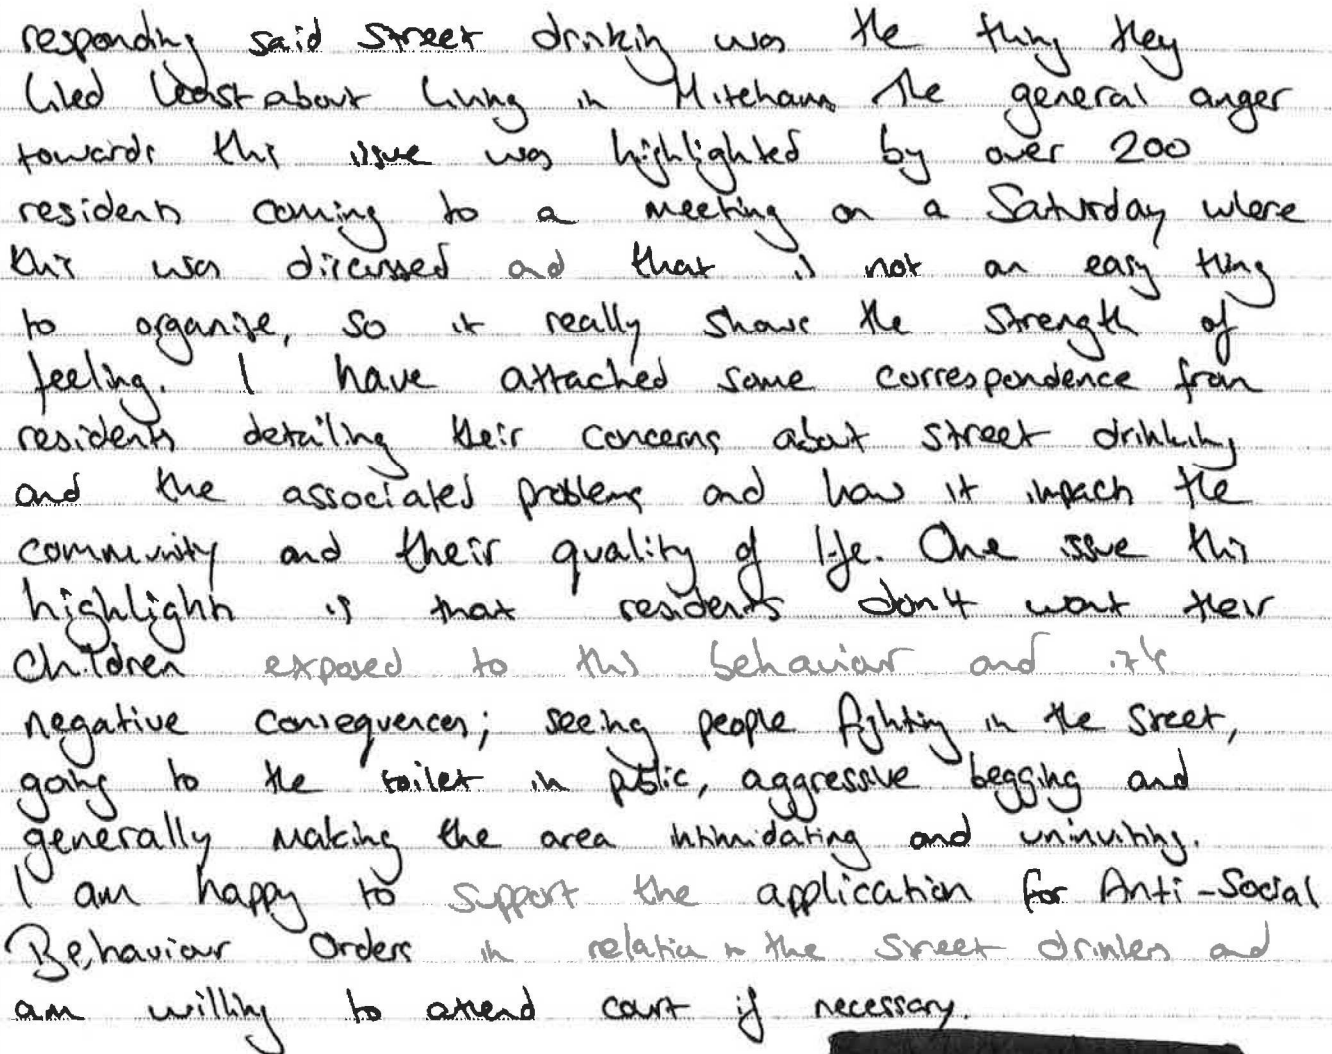 responding said street drinking was the thing they
liked least about living in Mitcham. The general anger
towards this issue was highlighted by over 200
residents coming to a meeting on a Saturday where
this was discussed and that is not an easy thing
to organise, so it really shows the strength of
feeling. I have attached some correspondence from
residents detailing their concerns about street drinking
and the associated problems and how it impacts the
community and their quality of life. One issue this
highlights is that residents don't want their
children exposed to this behaviour and it's
negative consequences; seeing people fighting in the street,
going to the toilet in public, aggressive begging and
generally making the area intimidating and uninviting.
I am happy to support the application for Anti-Social
Behaviour Orders in relation to the street drinkers and
am willing to attend court if necessary.